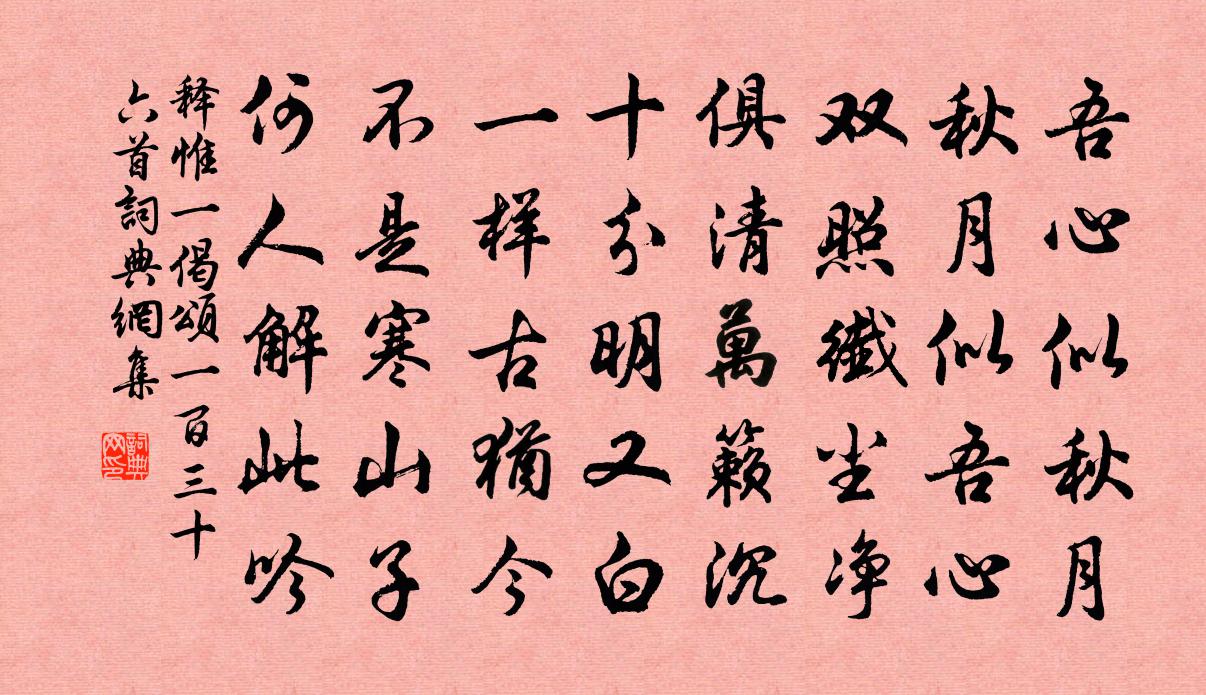 吾心似秋月
秋月似吾心
双照纖尘净
俱清萬籁沉
十分明又白
一样古猶今
不是寒山子
何人解此吟
释惟一偈頌一百三十
六首詞典網集
詞典网印